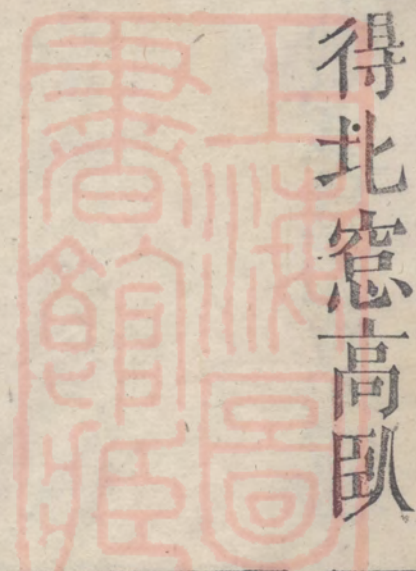 得北窓高臥
上海圖
書館藏